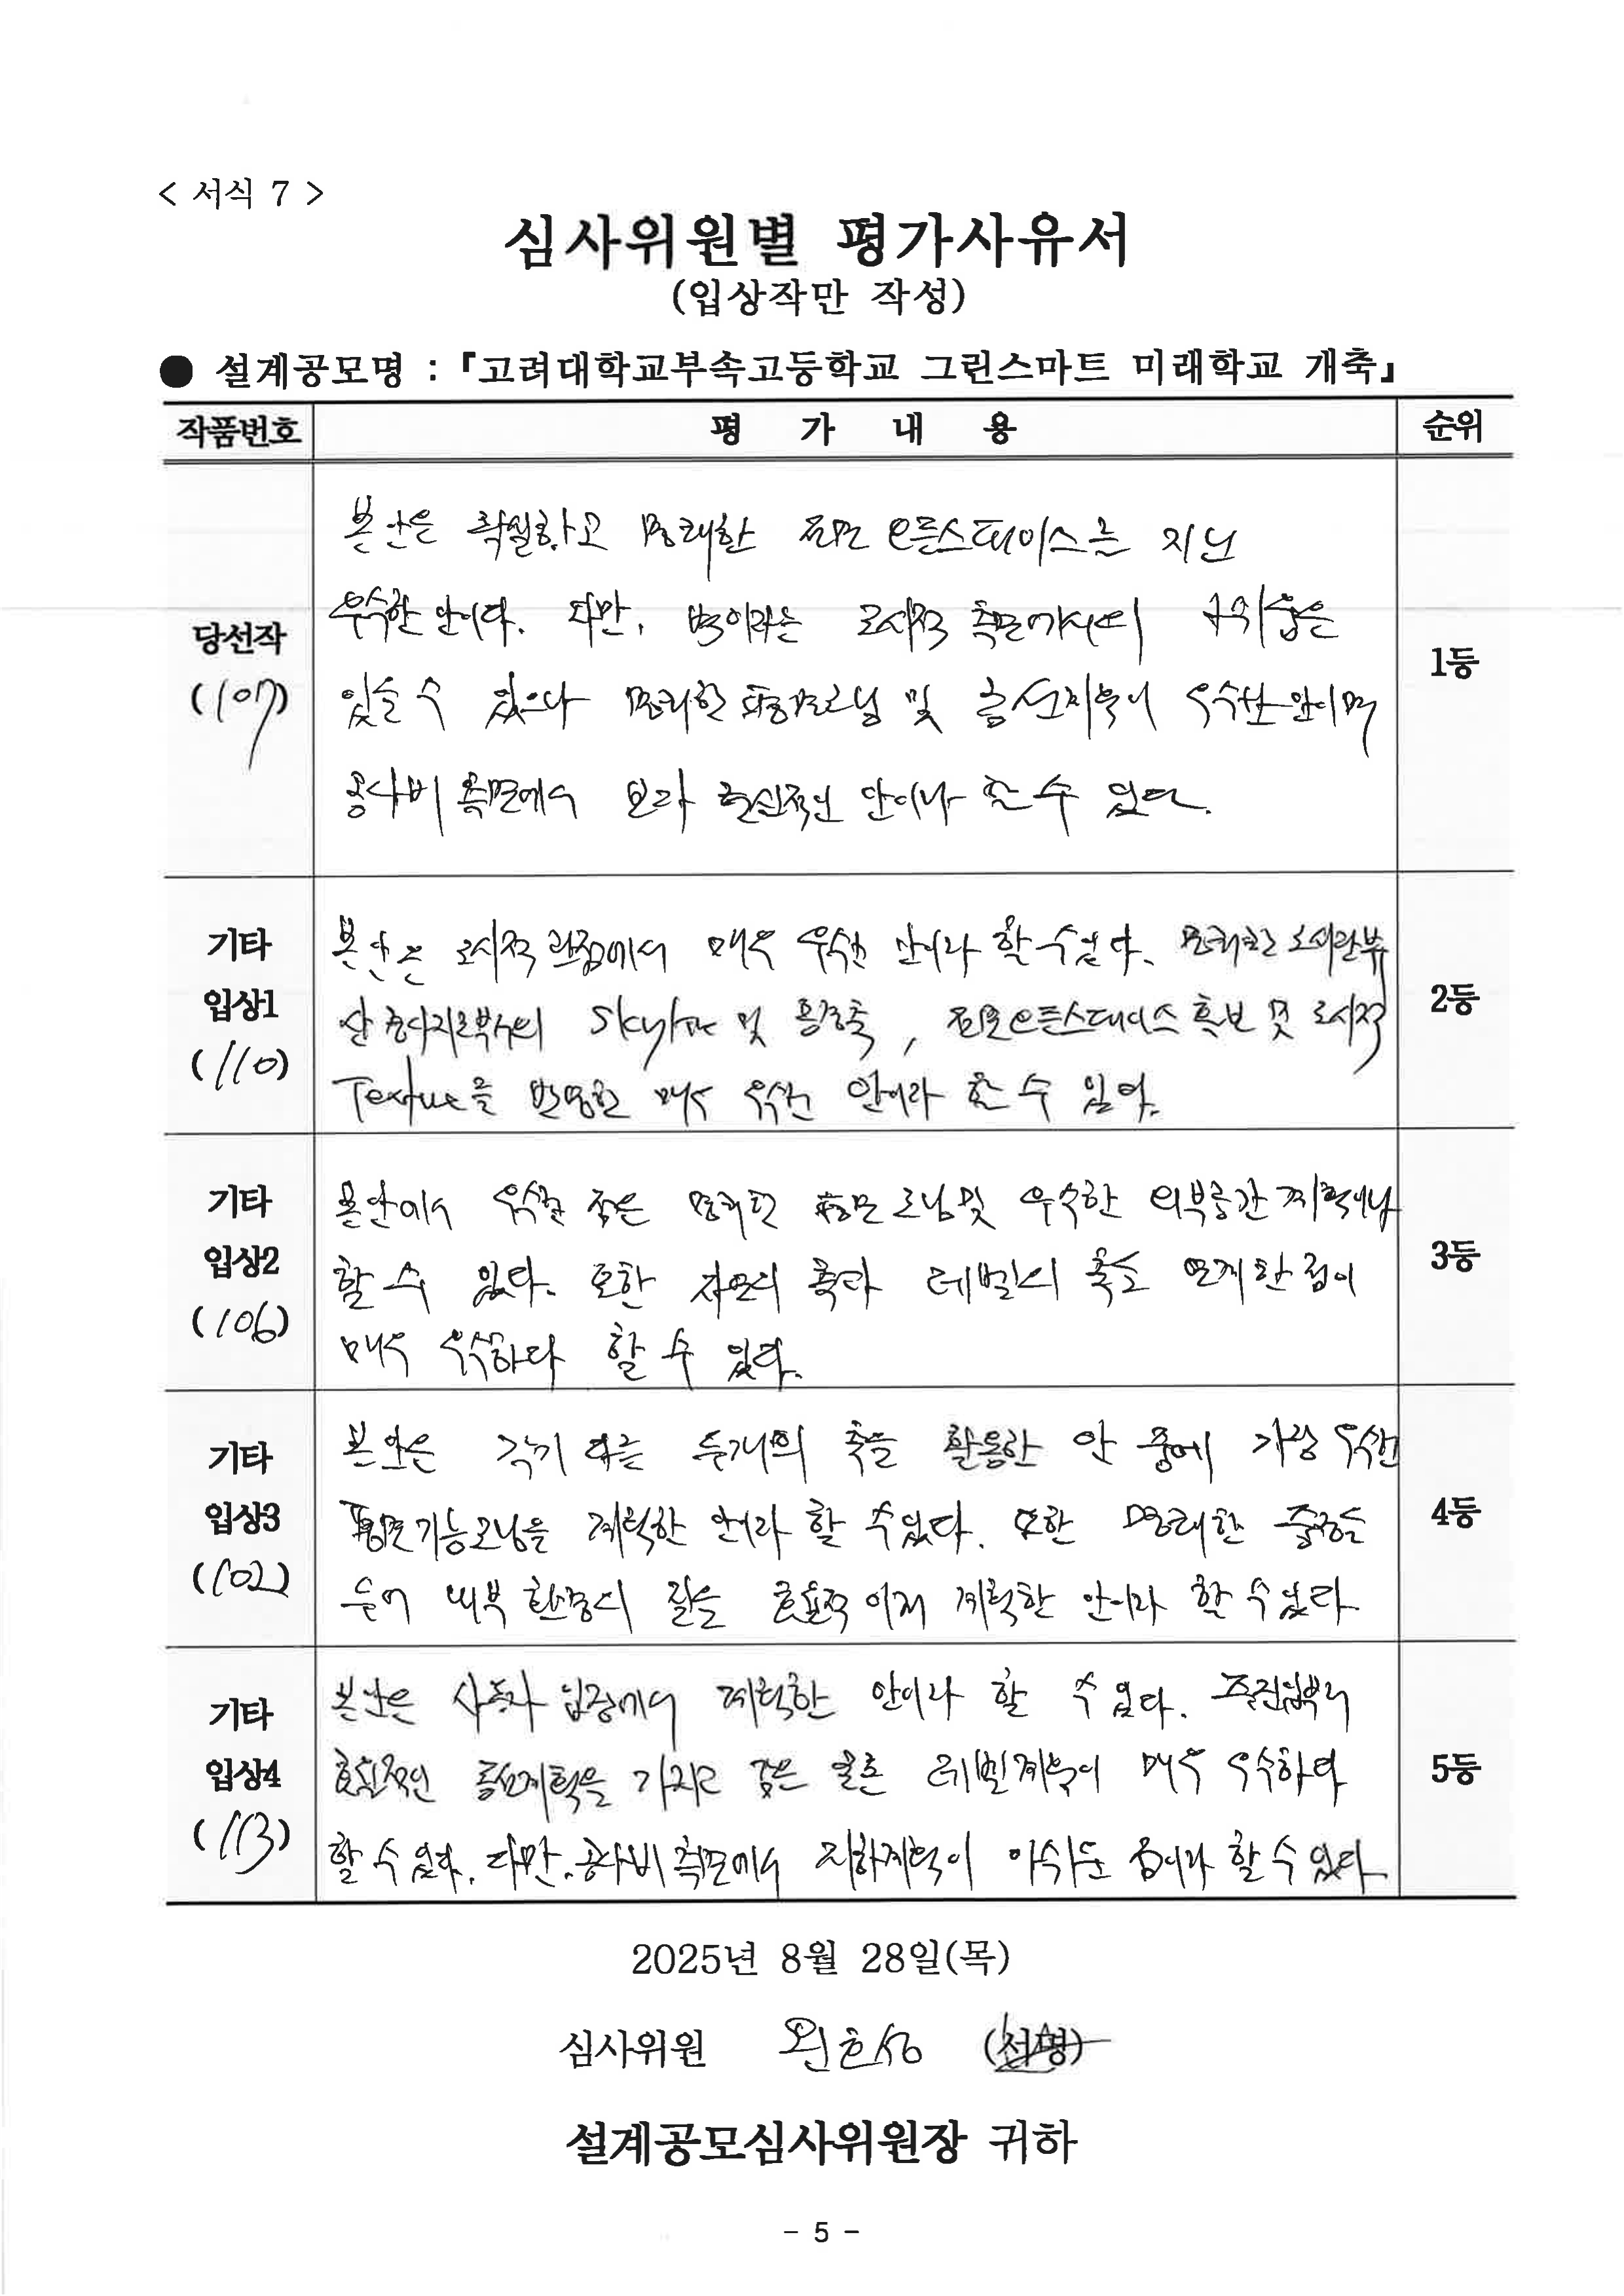 < 서식 7 >
심사위원별 평가사유서
(입상작만 작성)
● 설계공모명 : 『고려대학교부속고등학교 그린스마트 미래학교 개축』
작품번호 평 가 내 용 순위
당선작
(107)
본안은 확실하고 명쾌한 전면 오픈스페이스를 지닌
우수한 안이다. 다만, 벽이라는 도시적 측면에서의
있을 수 있으나 명쾌한 평면조닝 및 동선계획이 우수한 안이며
공사비 측면에서 보다 현실적인 안이라 할 수 있다.
1등
기타
입상1
(110)
본 안은 도시적 관점에서 매우 우수한 안이라 할 수 있다.
Skyline 및 통경축, 전면오픈스페이스 확보 및 도시적
Texture을 반영한 매우 우수한 안이라 할 수 있다.
2등
기타
입상2
(106)
본안에서 우수한 점은 명쾌한 평면 조닝 및 우수한 외부공간 계획이라
할 수 있다. 또한 자연의 축과 레벨의 축을 연계한 점이
매우 우수하다 할 수 있다.
3등
기타
입상3
(102)
본 안은 각기 다른 두개의 축을 활용한 안 중에 가장 우수한
평면기능조닝을 계획한 안이라 할 수 있다. 또한 명쾌한 중정을
두어 내부 환경의 질을 효율적 계획한 안이라 할 수 있다.
4등
기타
입상4
(113)
본 안은 사용자 입장에서 계획한 안이라 할 수 있다. 주진입부의
효율적인 동선계획을 가지고 같은 레벨계획이 매우 우수하다
할 수 있다. 다만, 공사비 측면에서 지하계획이 아쉬운 점이라 할 수 있다.
5등
2025년 8월 28일(목)
심사위원 (서명)
설계공모심사위원장 귀하
- 5 -